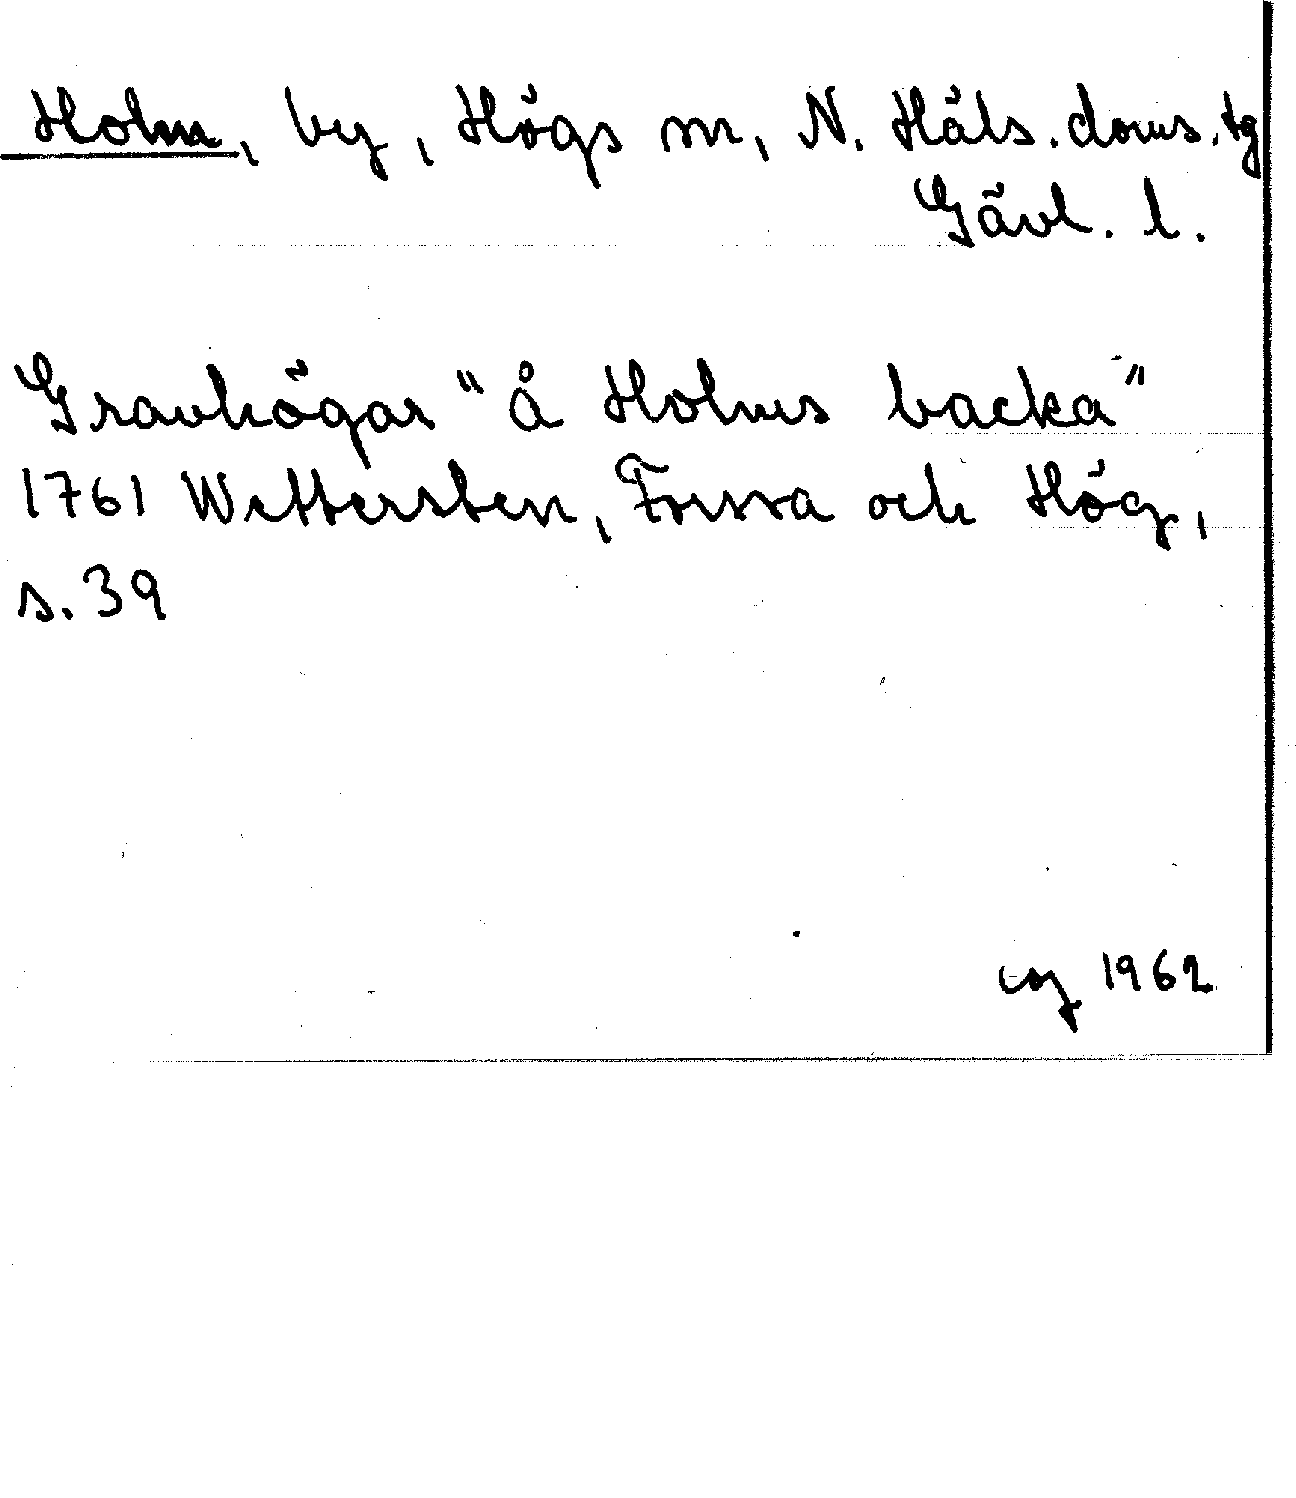 Holm, by, Högs sn, N. Häls. doms. tg
Gävl. l.
Gravhögar "å Holms backa"
1761 Wettersten, Forssa och Hög,
s. 39
1962